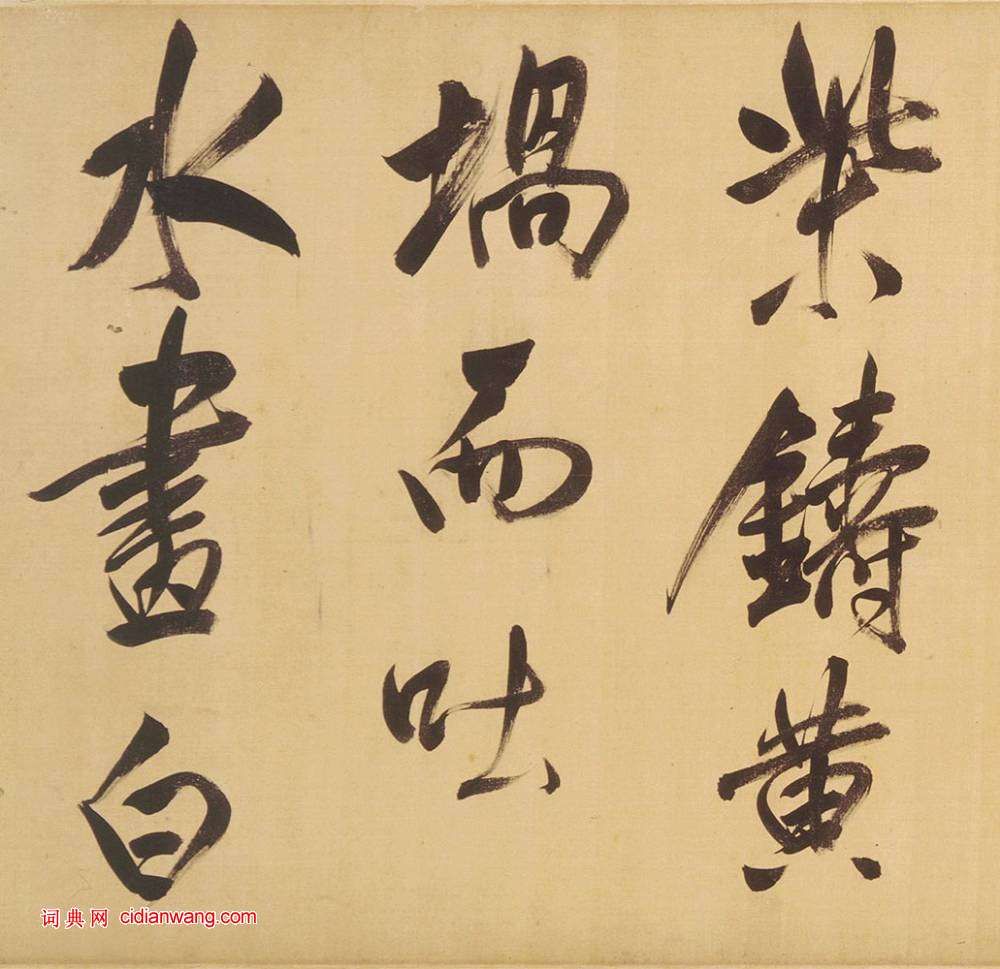 柴鑄黄
堝而吐
水畫白
词典网 cidianwang.com